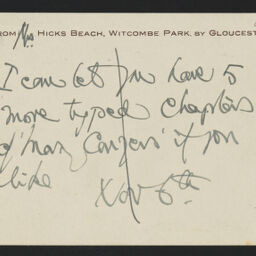 FROM Mrs HICKS BEACH, WITCOMBE PARK, BY GLOUCEST
I can let you have 5
more typed chapters
of 'Many Congers' if you
like
Nov 6th